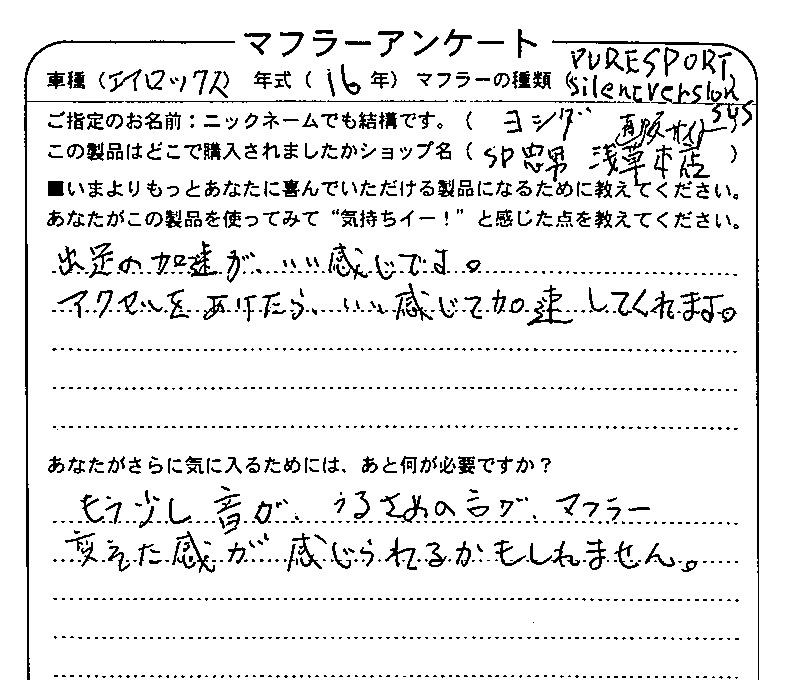 マフラーアンケート
車種(エイロックス) 年式(16年) マフラーの種類(PURESPORT Silentversion SUS)
ご指定のお名前:ニックネームでも結構です。(ヨシダ 直販サイト)
この製品はどこで購入されましたかショップ名(SP忠男 浅草本店)
■いまよりもっとあなたに喜んでいただける製品になるために教えてください。
あなたがこの製品を使ってみて“気持ちイー!”と感じた点を教えてください。
出足の加速が、いい感じです。
アクセルをあけたら、いい感じで加速してくれます。
あなたがさらに気に入るためには、あと何が必要ですか?
もう少し音が、うるさめの方が、マフラー
変えた感が感じられるかもしれません。